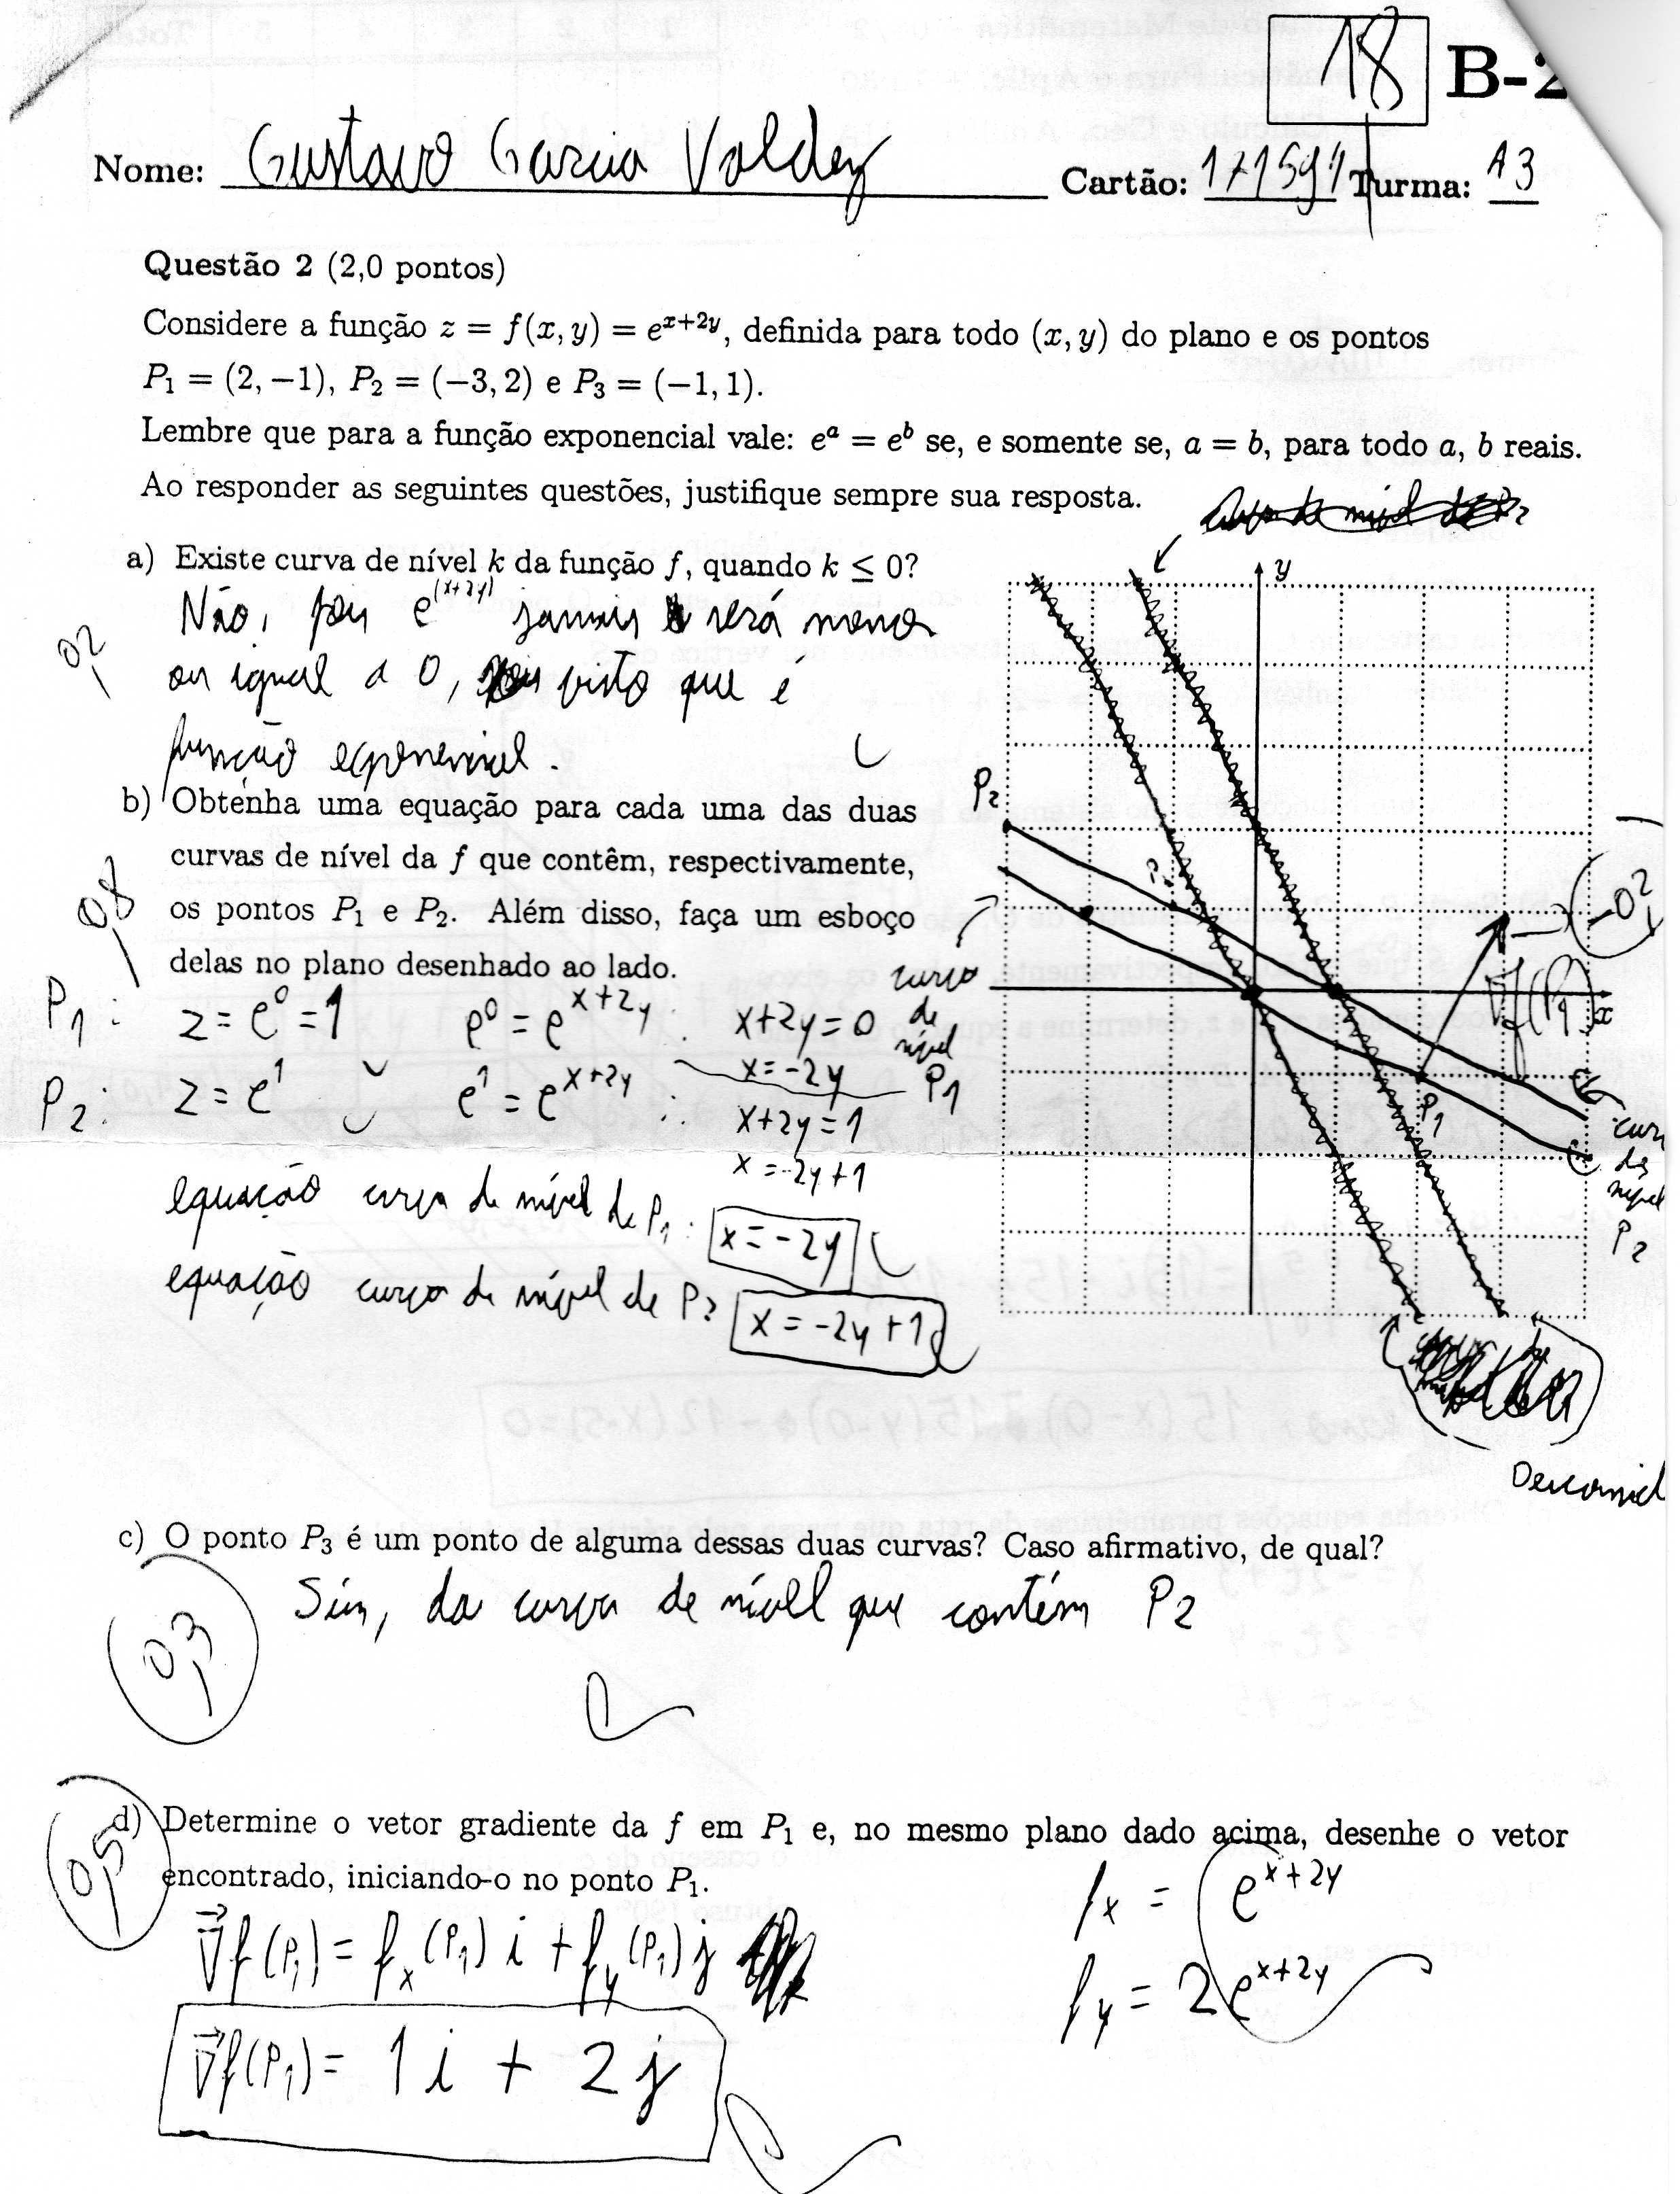 18
B-2
Nome: Gustavo Garcia Valdez Cartão: 171591 Turma: A3
Questão 2 (2,0 pontos)
Considere a função z = f(x, y) = e^{x+2y}, definida para todo (x, y) do plano e os pontos
P₁ = (2, −1), P₂ = (−3, 2) e P₃ = (−1, 1).
Lembre que para a função exponencial vale: e^a = e^b se, e somente se, a = b, para todo a, b reais.
Ao responder as seguintes questões, justifique sempre sua resposta.
a) Existe curva de nível k da função f, quando k ≤ 0?
Não, pois e^{(x+2y)} jamais será menor
ou igual a 0, visto que é
função exponencial.
0,2
b) Obtenha uma equação para cada uma das duas
curvas de nível da f que contêm, respectivamente,
os pontos P₁ e P₂. Além disso, faça um esboço
delas no plano desenhado ao lado.
0,8
P₁: z = e⁰ = 1 e⁰ = e^{x+2y} ∴ x+2y=0
x=-2y
P₂: z = e¹ e¹ = e^{x+2y} ∴ x+2y=1
x=-2y+1
equação curva de nível de P₁: x=-2y
equação curva de nível de P₂ x = -2y+1
y
x
P₂
P₁
curva
de
nível
P₁
∇f(P₁)
-0,2
curv
de
nível
P₂
c) O ponto P₃ é um ponto de alguma dessas duas curvas? Caso afirmativo, de qual?
Sim, da curva de nível que contém P₂
0,3
d) Determine o vetor gradiente da f em P₁ e, no mesmo plano dado acima, desenhe o vetor
encontrado, iniciando-o no ponto P₁.
0,5
∇f(P₁) = fx(P₁) i + fy(P₁) j
∇f(P₁) = 1i + 2j
fx = e^{x+2y}
fy = 2e^{x+2y}